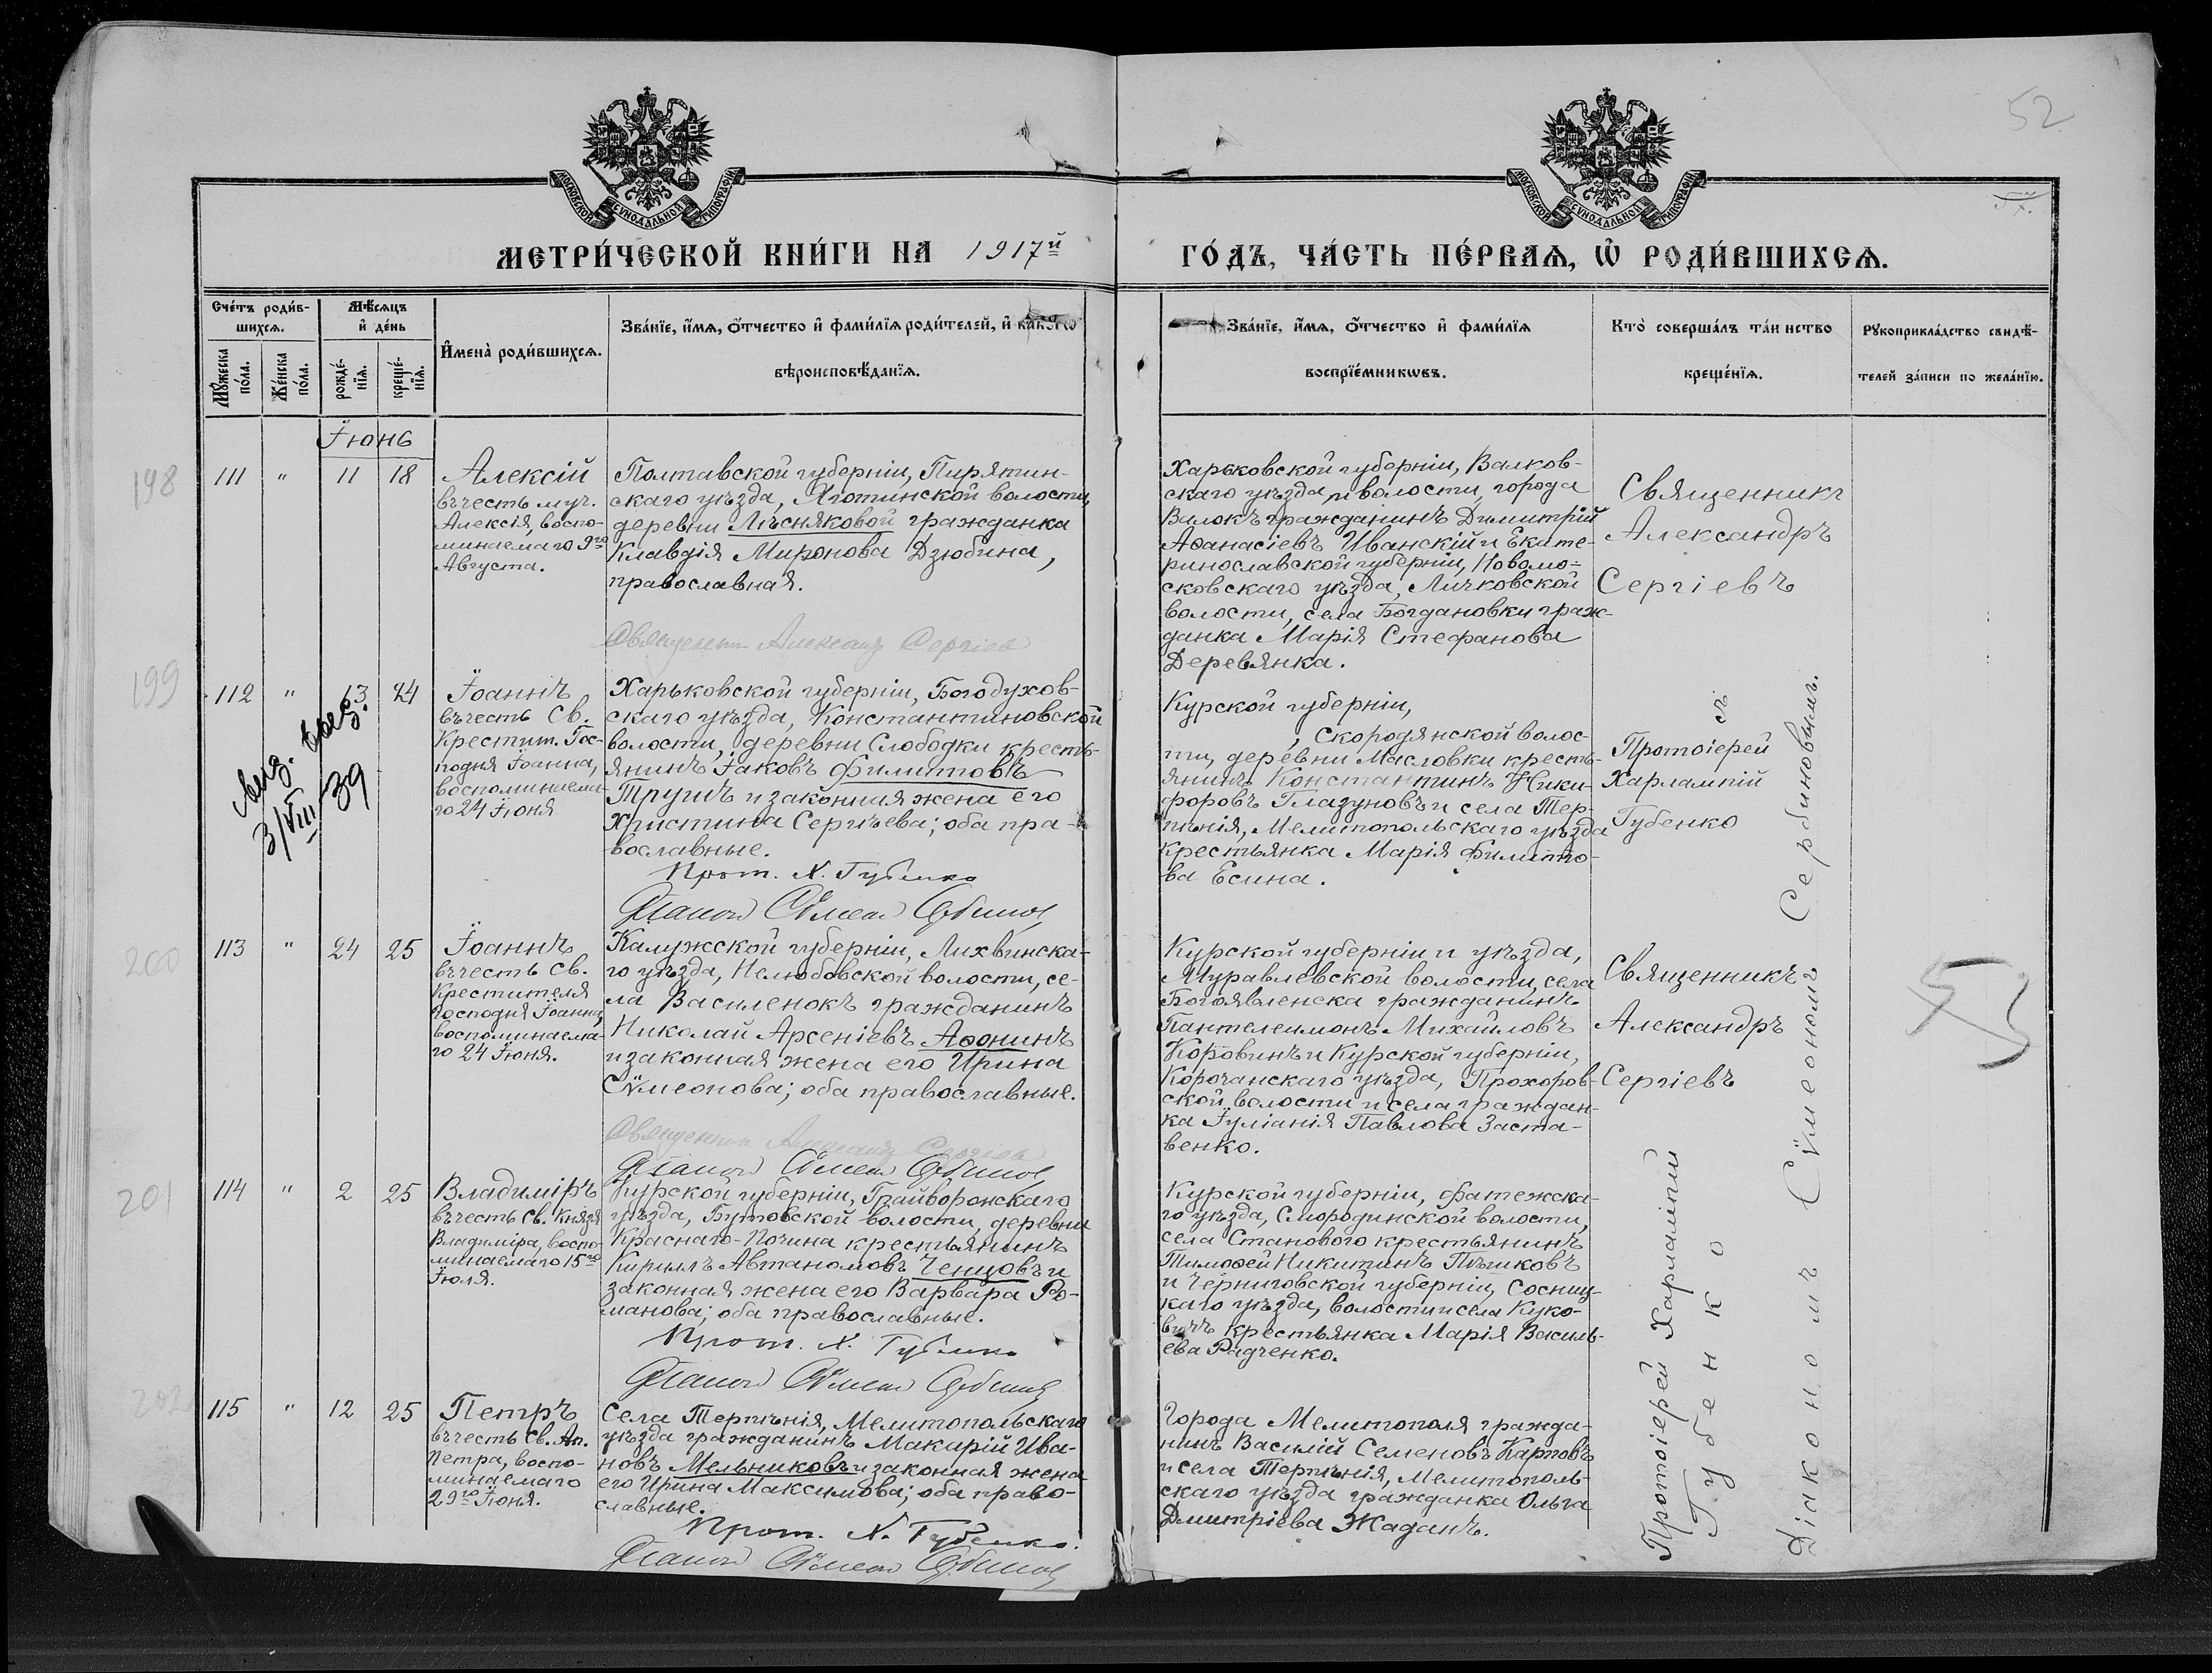 52
МОСКОВСКОЙ СѴНОДАЛЬНОЙ ТИПОГРАФІИ
МОСКОВСКОЙ СѴНОДАЛЬНОЙ ТИПОГРАФІИ
МЕТРИ́ЧЕСКОЙ КНИ́ГИ НА 1917й ГО́ДЪ, ЧА́СТЬ ПЕ́РВАѦ, Ѡ҆ РОДИ́ВШИХСѦ.
Сче́тъ роди́вшихсѧ.
Мѣ́сѧцъ и҆ де́нь
Мꙋ́жеска по́ла.
Же́нска по́ла.
рожде́нїѧ.
креще́нїѧ.
И҆мена̀ роди́вшихсѧ.
Зва́нїе, и҆́мѧ, ѻ҆́тчество и҆ фами́лїѧ роди́телей, и҆ како́гѡ
вѣроисповѣ́данїѧ.
Зва́нїе, и҆́мѧ, ѻ҆́тчество и҆ фами́лїѧ
воспрїе́мникѡвъ.
Кто̀ соверша́лъ та́инство
креще́нїѧ.
Рꙋкоприкла́дство свидѣ́-
телей за́писи по жела́нїю.
Іюнь
198
111 " 11 18
Алексій
въ честь муч.
Алексія, воспо-
минаемаго 9го
Августа.
Полтавской губерніи, Пирятин-
скаго уѣзда, Яготинской волости,
деревни Лѣсняковой гражданка
Клавдія Миронова Дзюбина,
православная.
Священник Александр Сергіев
Харьковской губерніи, Валков-
скаго уѣзда, и волости, города
Валокъ гражданинъ Димитрій
Аѳанасіевъ Иванскій и Екате-
ринославской губерніи, Новомо-
сковскаго уѣзда, Личковской
волости, села Богдановки граж-
данка Марія Стефанова
Деревянка.
Священникъ
Александръ
Сергіевъ
199
112 " 13 24
Іоаннъ
въ честь Св.
Крестит. Гос-
подня Іоанна,
воспоминаема-
го 24 Іюня
3/VIII 39
Харьковской губерніи, Богодухов-
скаго уѣзда, Константиновской
волости, деревни Слободки кресть-
янинъ Іаковъ Филипповъ
Трушъ и законная жена его
Христина Сергѣева; оба пра-
вославные.
Прот. Х. Губенко
Діакон Сѵмеон Сербинов
Курской губерніи,
, Скородянской волос-
ти, деревни Масловки кресть-
янинъ Константинъ Ники-
форовъ Глазуновъ и села Тер-
пѣнія, Мелитопольскаго уѣзда
крестьянка Марія Филиппо-
ва Есина.
Протоіерей
Харлампій
Губенко
200
113 " 24 25
Іоаннъ
въ честь Св.
Крестителя
Господня Іоанна,
воспоминаема-
го 24 Іюня.
Калужской губерніи, Лихвинска-
го уѣзда, Нелюбовской волости, се-
ла Василенокъ гражданинъ
Николай Арсеніевъ Аѳонинъ
и законная жена его Ирина
Сѵмеонова; оба православные.
Священник Александр Сергіев
Діакон Сѵмеон Сербинов
Курской губерніи и уѣзда,
Муравлевской волости, села
Богоявленска гражданинъ
Пантелеимонъ Михайловъ
Коровинъ и Курской губерніи,
Корочанскаго уѣзда, Прохоров-
ской волости и села граждан-
ка Іуліанія Павлова Заста-
венко.
Священникъ
Александръ
Сергіевъ
53
201
114 " 2 25
Владиміръ
въ честь Св. Князя
Владиміра, воспо-
минаемаго 15го
Іюля.
Курской губерніи, Грайворонскаго
уѣзда, Бутовской волости, деревни
Краснаго-Починка крестьянинъ
Кириллъ Автаномовъ Ченцовъ и
законная жена его Варвара Ро-
манова; оба православные.
Прот. Х. Губенко
Діакон Сѵмеон Сербинов
Курской губерніи, Фатежска-
го уѣзда, Смородинской волости,
села Становаго крестьянинъ
Тимоѳей Никитинъ Пѣшковъ
и Черниговской губерніи, Сосниц-
каго уѣзда, волости и села Куко-
вичъ крестьянка Марія Василь-
ева Радченко.
202
115 " 12 25
Петръ
въ честь Св. Ап.
Петра, воспо-
минаемаго
29го Іюня.
Села Терпѣнія, Мелитопольскаго
уѣзда гражданинъ Макарій Ива-
новъ Мельниковъ и законная жена
его Ирина Максимова; оба право-
славные.
Прот. Х. Губенко.
Діакон Сѵмеон Сербинов
Города Мелитополя гражда-
нинъ Василій Семеновъ Карповъ
и села Терпѣнія, Мелитополь-
скаго уѣзда гражданка Ольга
Дмитріева Жаданъ.
Протоіерей Харлампій съ
Губенко
Діакономъ Сѵмеономъ Сербиновымъ.